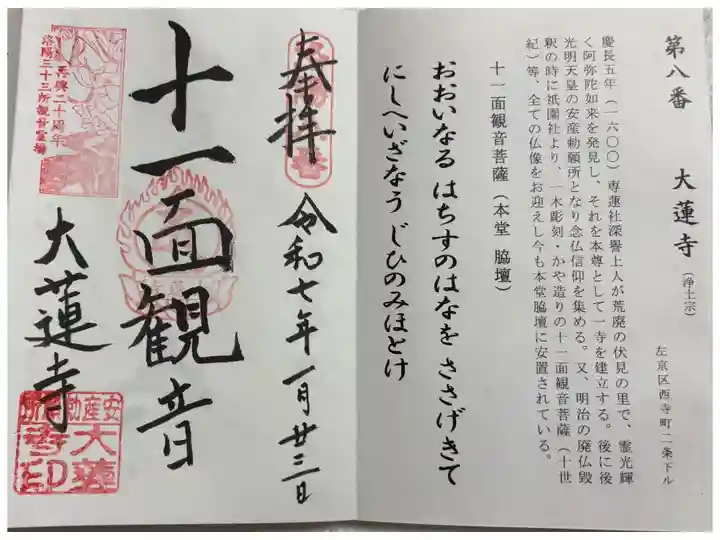 第八番 大蓮寺(浄土宗)
左京区西寺町二条下ル
慶長五年(一六〇〇)専蓮社深譽上人が荒廃の伏見の里で、霊光輝
く阿弥陀如来を発見し、それを本尊として一寺を建立する。後に後
光明天皇の安産勅願所となり念仏信仰を集める。又、明治の廃仏毀
釈の時に祇園社より、一木彫刻・かや造りの十一面観音菩薩(十世
紀)等、全ての仏像をお迎えし今も本堂脇壇に安置されている。
十一面観音菩薩(本堂 脇壇)
おおいなる はちすのはなを ささげきて
にしへいざなう じひのみほとけ
奉拝
令和七年一月廿三日
十一面観音
大蓮寺
再興二十周年
洛陽三十三所観音霊場
安産勅願所
大蓮
寺印